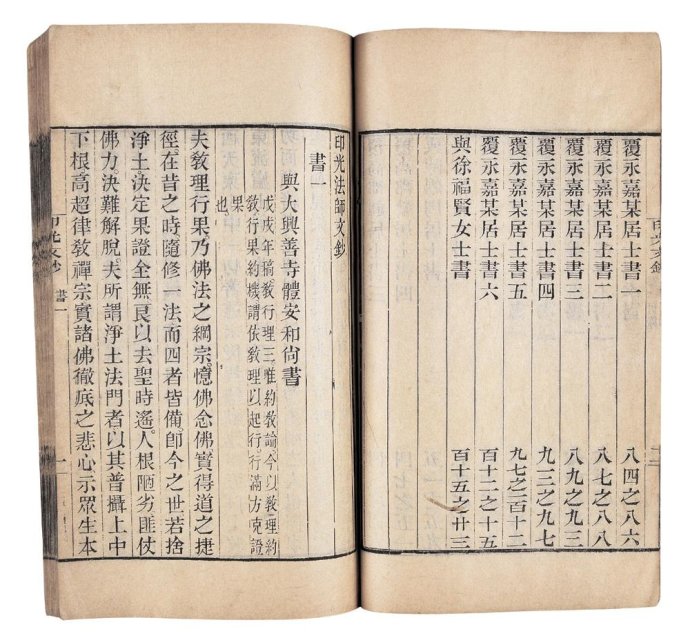 覆永嘉某居士書一 八四之八六
覆永嘉某居士書二 八七之八八
覆永嘉某居士書三 八九之九三
覆永嘉某居士書四 九三之九七
覆永嘉某居士書五 九七之百十二
覆永嘉某居士書六 百十二之十五
與徐福賢女士書 百十五之廿三
印光法師文鈔
書一
與大興善寺體安和尙書
戊戌年稿敎行理三唯約敎論。今以敎理約
敎行果約機謂依敎理以起行。行滿方克證
果
也
夫敎理行果乃佛法之綱宗。憶佛念佛實得道之捷
徑。在昔之時隨修一法而四者皆備。卽今之世若捨
淨土決定果證全無。良以去聖時遙。人根陋劣。匪仗
佛力決難解脫。夫所謂淨土法門者以其普攝上中
下根高超律敎禪宗實諸佛徹底之悲心示眾生本
印光文鈔 書一 一